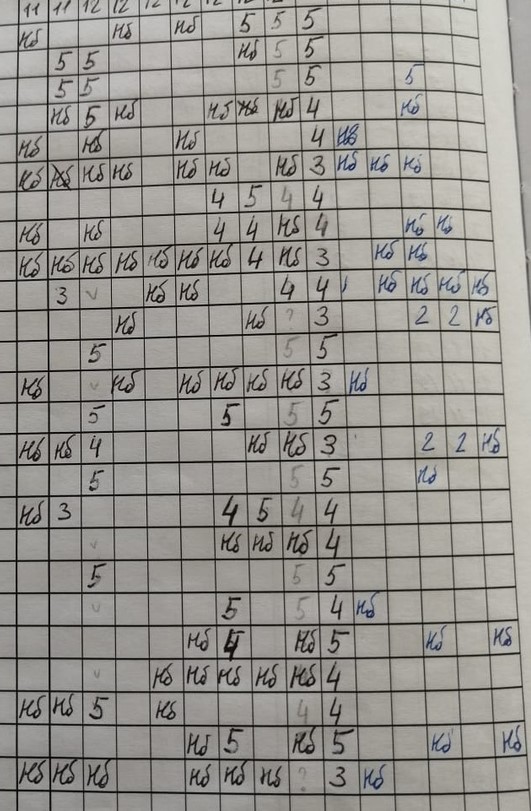 11 11 12 12 12 12
Нб Нб Нб 5 5 5
5 5 Нб 5 5
5 5 5 5 5
Нб 5 Нб Нб Нб Нб 4 Нб
Нб Нб Нб 4 Нв
Нб Нб Нб Нб Нб Нб Нб 3 Нб Нб Нб
4 5 4 4
Нб Нб 4 4 Нб 4 Нб Нб
Нб Нб Нб Нб Нб Нб Нб 4 Нб 3 Нб Нб
3 Нб Нб 4 4 Нб Нб Нб Нб
Нб Нб ? 3 2 2 Нб
5 5 5
Нб Нб Нб Нб Нб Нб 3 Нб
5 5 5 5
Нб Нб 4 Нб Нб 3 2 2 Нб
5 5 5 Нб
Нб 3 4 5 4 4
Нб Нб Нб 4
5 5 5
5 5 4 Нб
Нб Нб 5 Нб Нб
Нб Нб Нб Нб Нб 4
Нб Нб 5 Нб 4 4
Нб 5 Нб 5 Нб Нб
Нб Нб Нб Нб Нб Нб ? 3 Нб